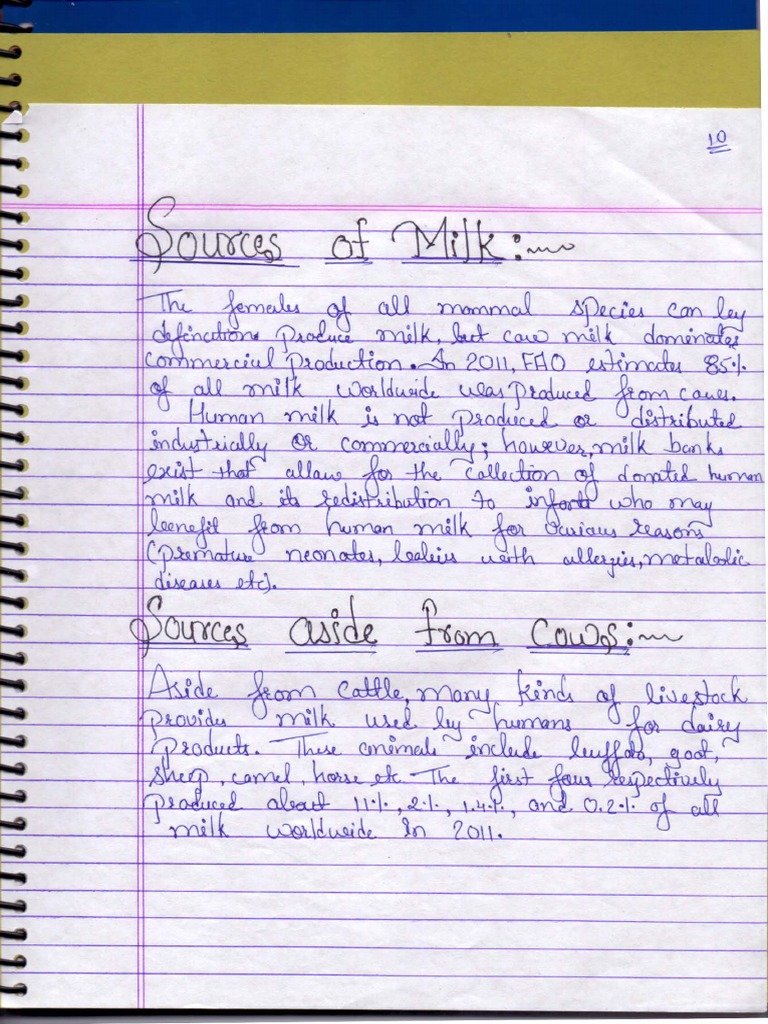 10
Sources of Milk:~
The females of all mammal species can by
definations Produce milk, but cow milk dominates
commercial production. In 2011, FAO estimates 85%
of all milk worldwide was produced from cows.
Human milk is not produced or distributed
industrially or commercially; however, milk banks
exist that allow for the collection of donated human
milk and its redistribution to infants who may
benefit from human milk for various reasons
(premature neonates, babies with allergies, metabolic
diseases etc).
Sources aside from Cows:~
Aside from Cattle, many kinds of livestock
provides milk used by humans for dairy
Products. These animals include buffalo, goat,
sheep, camel, horse etc. The first four respectively
produced about 11%, 2%, 1.4%, and 0.2% of all
milk worldwide In 2011.